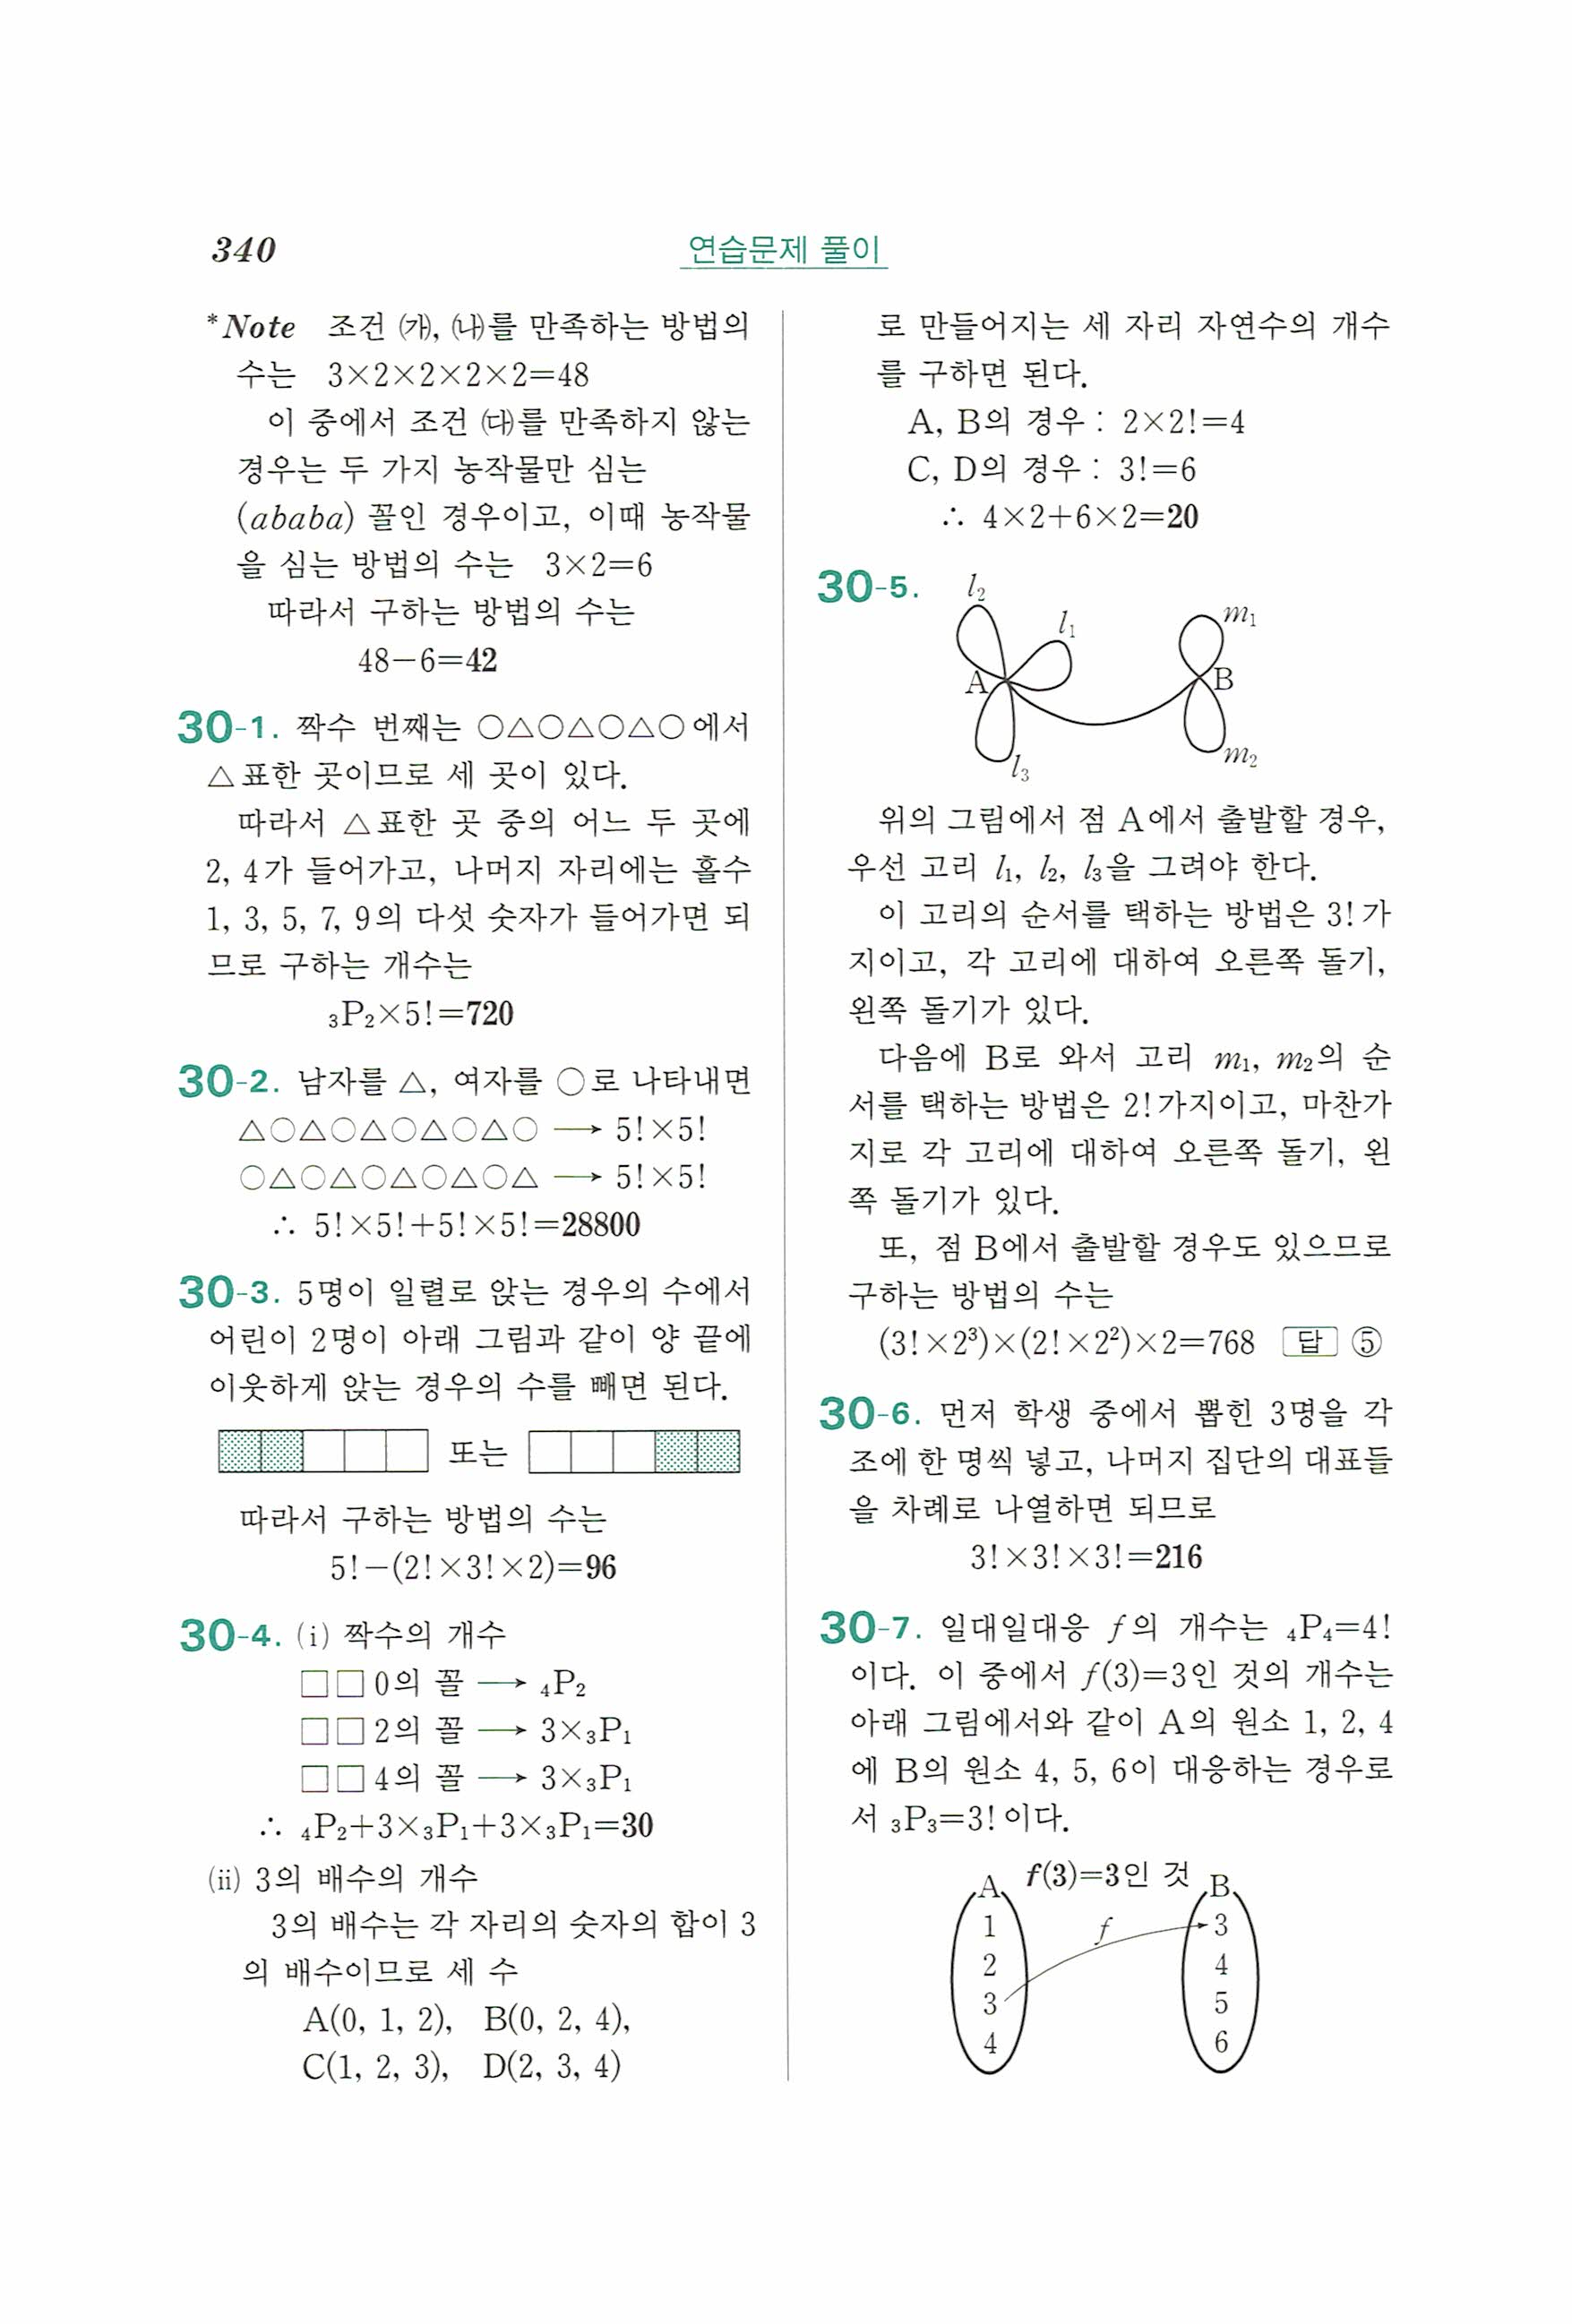 340
연습문제 풀이
*Note 조건 ㈎, ㈏를 만족하는 방법의
수는 3×2×2×2×2=48
이 중에서 조건 ㈐를 만족하지 않는
경우는 두 가지 농작물만 심는
(ababa) 꼴인 경우이고, 이때 농작물
을 심는 방법의 수는 3×2=6
따라서 구하는 방법의 수는
48−6=42
30-1. 짝수 번째는 ○△○△○△○에서
△표한 곳이므로 세 곳이 있다.
따라서 △표한 곳 중의 어느 두 곳에
2, 4가 들어가고, 나머지 자리에는 홀수
1, 3, 5, 7, 9의 다섯 숫자가 들어가면 되
므로 구하는 개수는
₃P₂×5!=720
30-2. 남자를 △, 여자를 ○로 나타내면
△○△○△○△○△○ ⟶ 5!×5!
○△○△○△○△○△ ⟶ 5!×5!
∴ 5!×5!+5!×5!=28800
30-3. 5명이 일렬로 앉는 경우의 수에서
어린이 2명이 아래 그림과 같이 양 끝에
이웃하게 앉는 경우의 수를 빼면 된다.
또는
따라서 구하는 방법의 수는
5!−(2!×3!×2)=96
30-4. (i) 짝수의 개수
□□0의 꼴 ⟶ ₄P₂
□□2의 꼴 ⟶ 3×₃P₁
□□4의 꼴 ⟶ 3×₃P₁
∴ ₄P₂+3×₃P₁+3×₃P₁=30
(ii) 3의 배수의 개수
3의 배수는 각 자리의 숫자의 합이 3
의 배수이므로 세 수
A(0, 1, 2), B(0, 2, 4),
C(1, 2, 3), D(2, 3, 4)
로 만들어지는 세 자리 자연수의 개수
를 구하면 된다.
A, B의 경우 : 2×2!=4
C, D의 경우 : 3!=6
∴ 4×2+6×2=20
30-5.
l₂
l₁
m₁
A
B
l₃
m₂
위의 그림에서 점 A에서 출발할 경우,
우선 고리 l₁, l₂, l₃을 그려야 한다.
이 고리의 순서를 택하는 방법은 3!가
지이고, 각 고리에 대하여 오른쪽 돌기,
왼쪽 돌기가 있다.
다음에 B로 와서 고리 m₁, m₂의 순
서를 택하는 방법은 2!가지이고, 마찬가
지로 각 고리에 대하여 오른쪽 돌기, 왼
쪽 돌기가 있다.
또, 점 B에서 출발할 경우도 있으므로
구하는 방법의 수는
(3!×2³)×(2!×2²)×2=768 답 ⑤
30-6. 먼저 학생 중에서 뽑힌 3명을 각
조에 한 명씩 넣고, 나머지 집단의 대표들
을 차례로 나열하면 되므로
3!×3!×3!=216
30-7. 일대일대응 f의 개수는 ₄P₄=4!
이다. 이 중에서 f(3)=3인 것의 개수는
아래 그림에서와 같이 A의 원소 1, 2, 4
에 B의 원소 4, 5, 6이 대응하는 경우로
서 ₃P₃=3!이다.
f(3)=3인 것
A
B
f
1
3
2
4
3
5
4
6